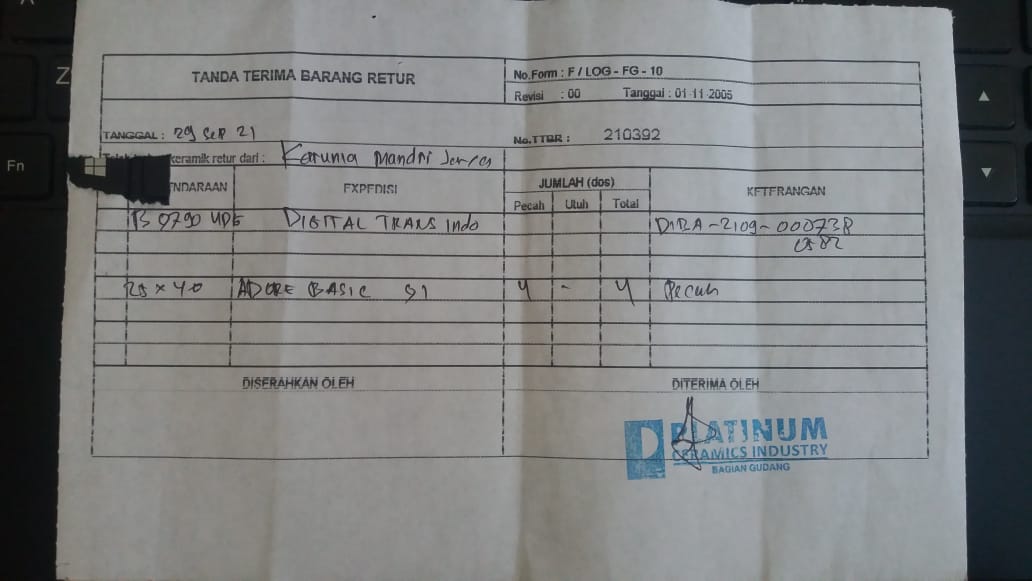 TANDA TERIMA BARANG RETUR
No.Form : F / LOG - FG - 10
Revisi : 00 Tanggal : 01-11-2005
TANGGAL : 29 Sep 21
No.TTBR : 210392
keramik retur dari : Karunia Mandiri
NDARAAN EXPEDISI JUMLAH (dos) KETERANGAN
Pecah Utuh Total
B 9790 DIGITAL TRANS Indo DIRA-2109-000738
25 x 40 ADORE BASIC 4 - 4 Pecah
DISERAHKAN OLEH DITERIMA OLEH
PLATINUM
CERAMICS INDUSTRY
BAGIAN GUDANG